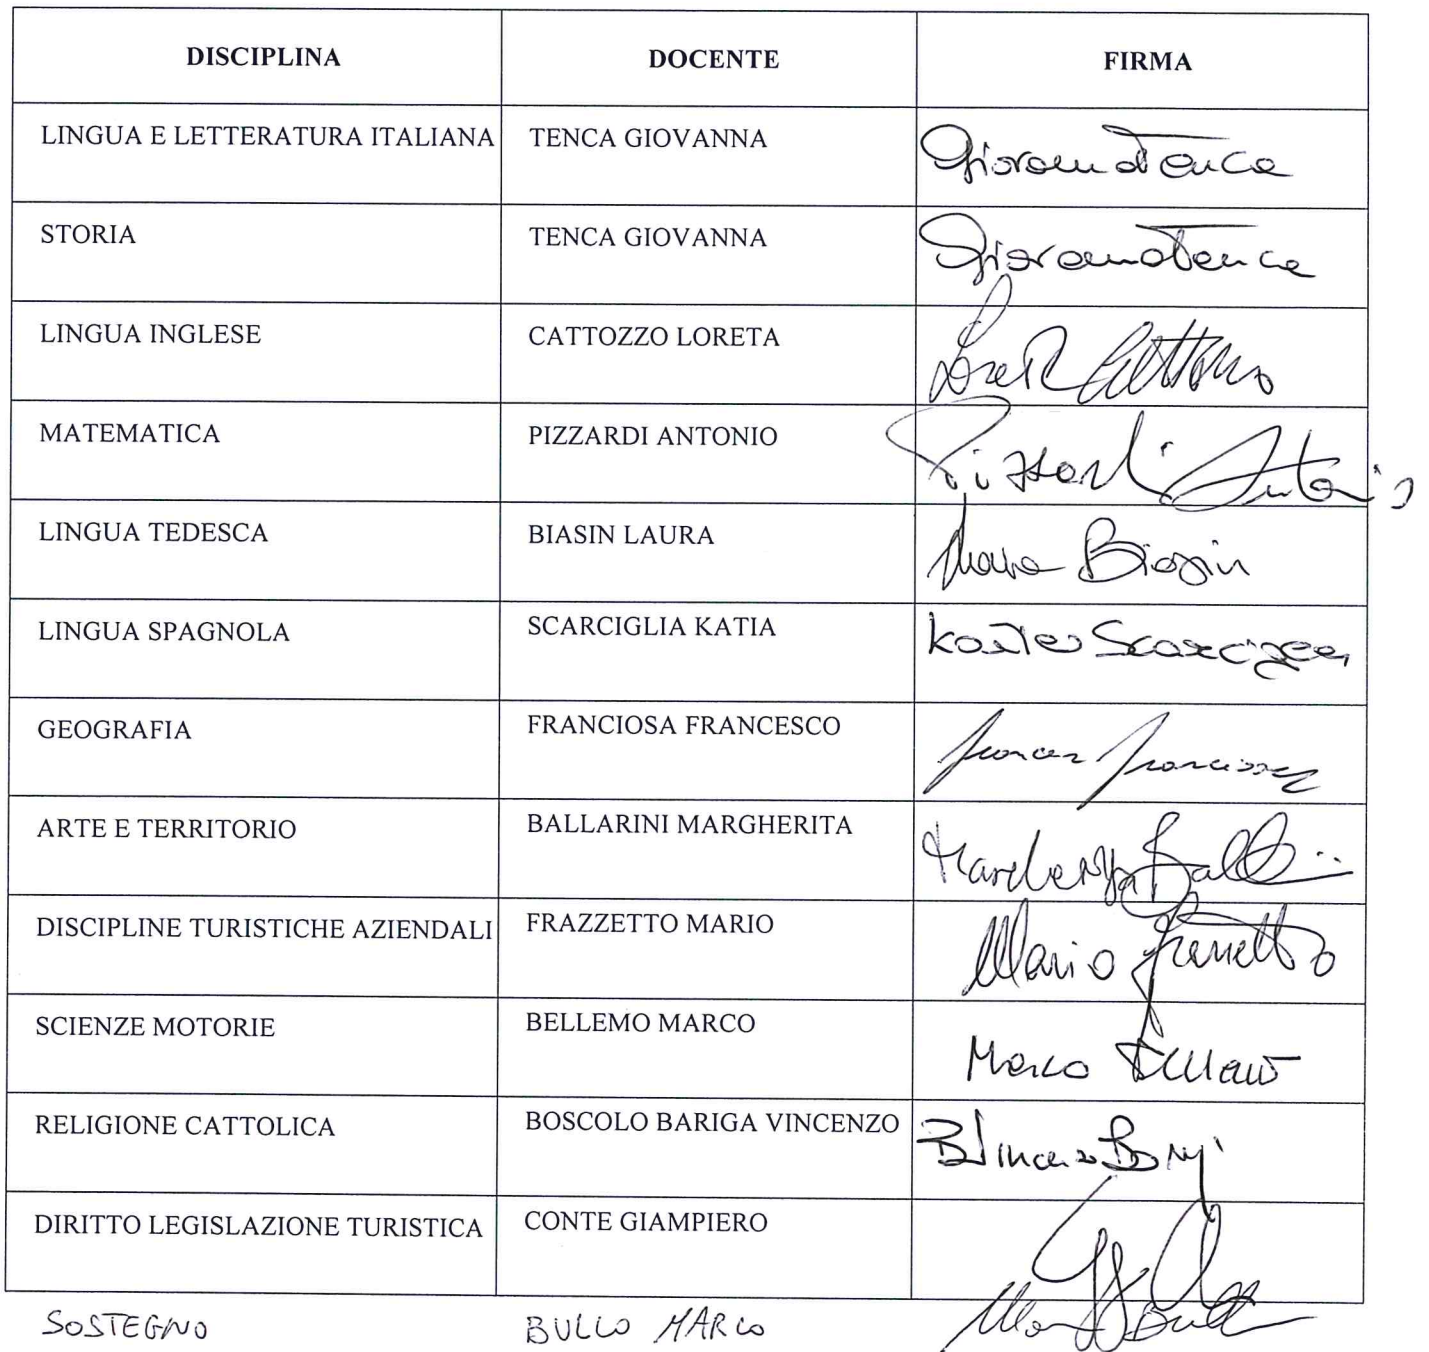 DISCIPLINA DOCENTE FIRMA
LINGUA E LETTERATURA ITALIANA TENCA GIOVANNA Giovanna Tenca
STORIA TENCA GIOVANNA Giovanna Tenca
LINGUA INGLESE CATTOZZO LORETA
MATEMATICA PIZZARDI ANTONIO Pizzardi Antonio
LINGUA TEDESCA BIASIN LAURA Laura Biasin
LINGUA SPAGNOLA SCARCIGLIA KATIA Katia Scarciglia
GEOGRAFIA FRANCIOSA FRANCESCO
ARTE E TERRITORIO BALLARINI MARGHERITA Margherita
DISCIPLINE TURISTICHE AZIENDALI FRAZZETTO MARIO Mario Frazzetto
SCIENZE MOTORIE BELLEMO MARCO Marco
RELIGIONE CATTOLICA BOSCOLO BARIGA VINCENZO
DIRITTO LEGISLAZIONE TURISTICA CONTE GIAMPIERO
SOSTEGNO BULLO MARCO